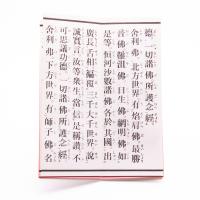 德 一切諸佛所護念經
舍利弗 北方世界 有焰肩佛 最勝
音佛 難沮佛 日生佛 網明佛 如
是等 恒河沙數諸佛 各於其國 出
廣長舌相 徧覆三千大千世界 說
誠實言 汝等眾生 當信是稱讚不
可思議功德 一切諸佛所護念經
舍利弗 下方世界 有師子佛 名